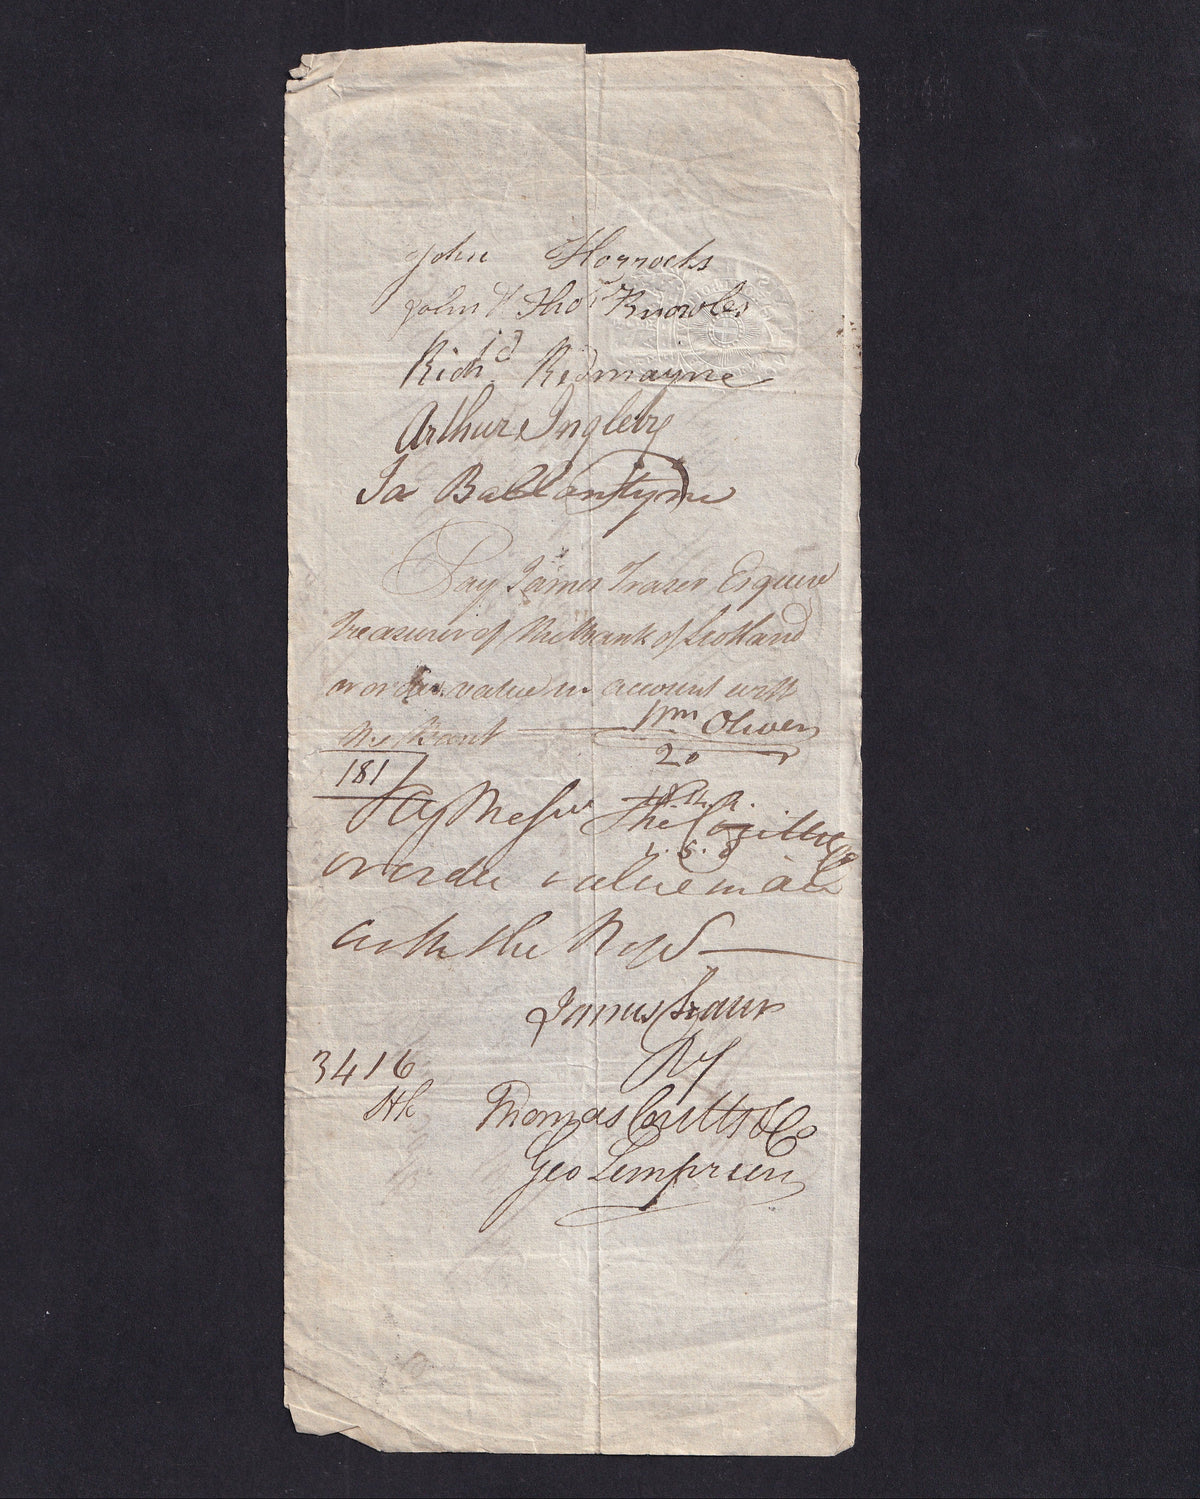 John Horrocks
John & Thos Knowles
Richd Redmayne
Arthur Ingleby
Ja Ballantyne
Pay James Fraser Esquire
Treasurer of the Bank of Scotland
or order value in account with
the Bank Wm Oliver
181 20
Pay Messrs Tho Coutts & Co
or order value in acct
with the Royl
James Fraser
3416
Thomas Coutts & Co
Geo Lempriere